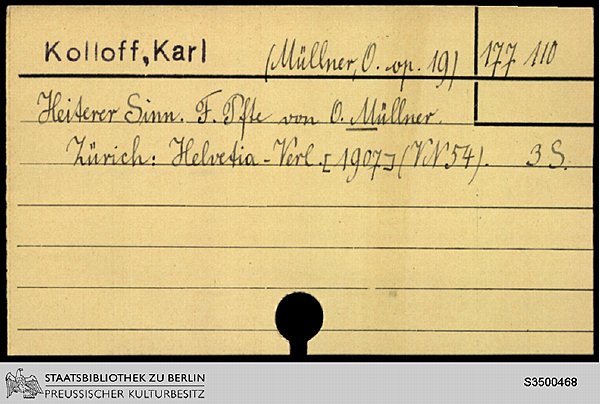 Kolloff, Karl (Müllner, O. op. 19) 177 110
Heiterer Sinn. F. Pfte von O. Müllner.
Zürich: Helvetia-Verl. [1907] (VN 54). 3 S.
STAATSBIBLIOTHEK ZU BERLIN
PREUSSISCHER KULTURBESITZ
S3500468